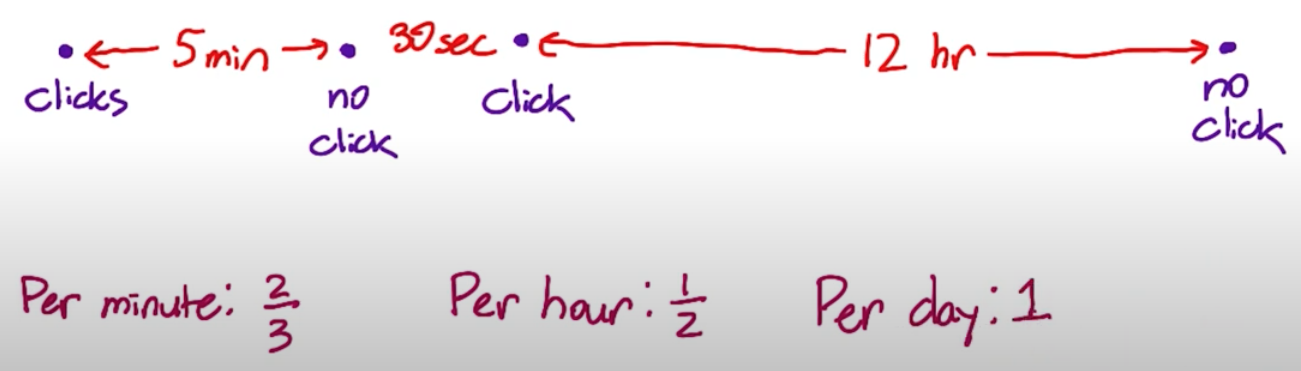 5 min 30 sec 12 hr
clicks no click Click no click
Per minute: 2/3 Per hour: 1/2 Per day: 1